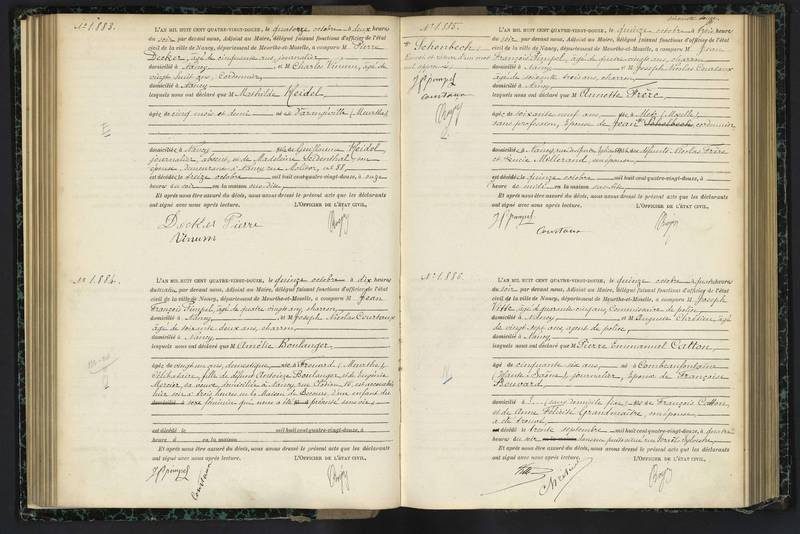 No 1.883.
L'AN MIL HUIT CENT QUATRE-VINGT-DOUZE, le quatorze octobre à deux heures
du soir, par devant nous, Adjoint au Maire, délégué faisant fonctions d'officier de l'état
civil de la ville de Nancy, département de Meurthe-et-Moselle, a comparu M Pierre
Decker, âgé de cinquante ans, journalier,
domicilié à Nancy, et M Charles Vinum, âgé de
vingt huit ans, cordonnier,
domicilié à Nancy
lesquels nous ont déclaré que M Mathilde Keidel
âgée de cinq mois et demi née à Varangéville (Meurthe)
domiciliée à Nancy fille de Guillaume Keidel
journalier, absent, et de Madeleine Seidenthal, son
épouse, demeurant à Nancy rue Molitor, no 38,
est décédée le treize octobre mil huit cent quatre-vingt-douze, à onze
heures du soir en la maison susdite
Et après nous être assuré du décès, nous avons dressé le présent acte que les déclarants
ont signé avec nous après lecture. L'OFFICIER DE L'ÉTAT CIVIL,
Decker Pierre
Vinum
No 1.884.
L'AN MIL HUIT CENT QUATRE-VINGT-DOUZE, le quinze octobre à dix heures
du matin, par devant nous, Adjoint au Maire, délégué faisant fonctions d'officier de l'état
civil de la ville de Nancy, département de Meurthe-et-Moselle, a comparu M Jean
François Pimpel, âgé de quatre vingts ans, charron,
domicilié à Nancy, et M Joseph Nicolas Courtaux
âgé de soixante deux ans, charron,
domicilié à Nancy
lesquels nous ont déclaré que M Amélie Boulanger
âgée de vingt ans, domestique, née à Frouard (Meurthe)
célibataire, fille de défunt Antoine Boulanger et de
Mercier, sa veuve, domiciliée à Nancy rue 15, est accouchée
hier soir à trois heures en la Maison de Secours, d'un enfant du
sexe féminin qui nous a été présenté sans vie
est décédé le mil huit cent quatre-vingt-douze, à
heure à en la maison
Et après nous être assuré du décès, nous avons dressé le présent acte que les déclarants
ont signé avec nous après lecture. L'OFFICIER DE L'ÉTAT CIVIL,
Courtaux
No 1.885.
Schonbech
Courtaux
L'AN MIL HUIT CENT QUATRE-VINGT-DOUZE, le quinze octobre à trois heures
du soir, par devant nous, Adjoint au Maire, délégué faisant fonctions d'officier de l'état
civil de la ville de Nancy, département de Meurthe-et-Moselle, a comparu M Jean
François Pimpel, âgé de quatre vingts ans, charron
domicilié à Nancy, et M Joseph Nicolas Courtaux
âgé de soixante trois ans, charron,
domicilié à Nancy
lesquels nous ont déclaré que M Annette Frère
âgée de soixante neuf ans née à Metz (Moselle)
sans profession, épouse de Jean Scholbech, cordonnier,
domiciliée à Nancy, fille de défunts Nicolas Frère
et Lucie Mellerand, son épouse
est décédée le quinze octobre mil huit cent quatre-vingt-douze, à
heure de midi en la maison susdite
Et après nous être assuré du décès, nous avons dressé le présent acte que les déclarants
ont signé avec nous après lecture. L'OFFICIER DE L'ÉTAT CIVIL,
Courtaux
No 1.886.
L'AN MIL HUIT CENT QUATRE-VINGT-DOUZE, le quinze octobre à quatre heures
du soir, par devant nous, Adjoint au Maire, délégué faisant fonctions d'officier de l'état
civil de la ville de Nancy, département de Meurthe-et-Moselle, a comparu M Joseph
Vitte, âgé de quarante cinq ans, Commissaire de police,
domicilié à Nancy, et M Auguste Chrétien, âgé
de vingt sept ans, agent de police,
domicilié à Nancy
lesquels nous ont déclaré que M Pierre Emmanuel Catton
âgé de cinquante six ans, né à Combeaufontaine
(Haute Saône), journalier, époux de Françoise
Bouvard
domicilié à (sans domicile fixe) fils de François Catton
et de Anne Félicité Grandmaître, son épouse
a été trouvé
le trente septembre mil huit cent quatre-vingt-douze, à quatre
heures du soir
Et après nous être assuré du décès, nous avons dressé le présent acte que les déclarants
ont signé avec nous après lecture. L'OFFICIER DE L'ÉTAT CIVIL,
Vitte
Chrétien